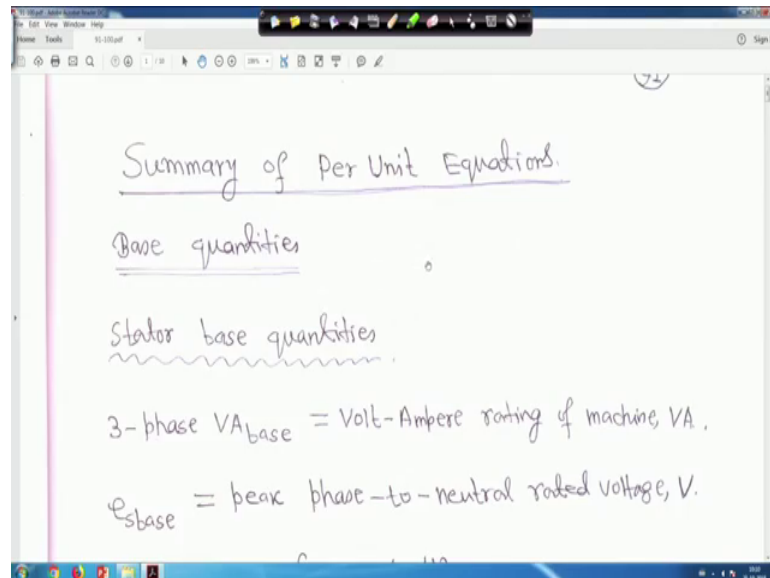 91-100.pdf - Adobe Acrobat Reader DC
File Edit View Window Help
Home Tools 91-100.pdf × Sign
1 / 10
91
Summary of Per Unit Equations.
Base quantities
Stator base quantities.
3-phase VAbase = Volt-Ampere rating of machine, VA.
esbase = peak phase-to-neutral rated voltage, V.